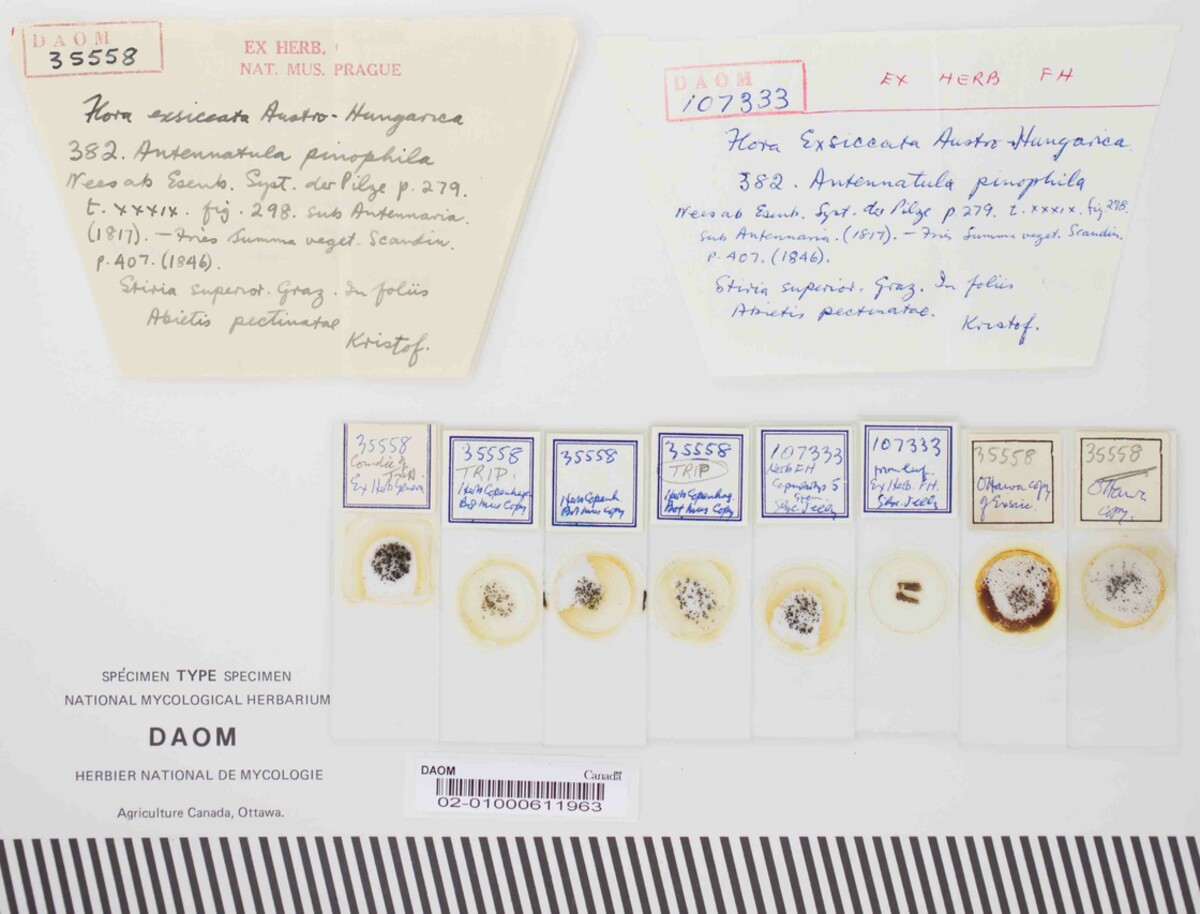 DAOM
35558
EX HERB.
NAT. MUS. PRAGUE
Flora exsiccata Austro-Hungarica
382. Antennatula pinophila
Nees ab Esenb. Syst. der Pilze p. 279.
t. xxxix. fig. 298. sub Antennaria.
(1817). — Fries Summa veget. Scandin.
p. 407. (1846).
Stiria superior. Graz. In foliis
Abietis pectinatae
Kristof.
DAOM
107333
EX HERB FH
Flora Exsiccata Austro-Hungarica.
382. Antennatula pinophila
Nees ab Esenb. Syst. der Pilze p. 279. t. xxxix. fig 298.
sub Antennaria. (1817). — Fries Summa veget. Scandin.
p. 407. (1846).
Stiria superior. Graz. In foliis
Abietis pectinatae.
Kristof.
35558
Ex Herb Geneva
35558
TRIP.
Herb Copenhagen
Bot Mus Copy
35558
Herb Copenh
Bot Mus copy
35558
TRIP
Herb Copenhag.
Bot Mus Copy
107333
Herb FH
Glyc. Jelly
107333
Ex Herb. FH.
Glyc. Jelly
35558
Ottawa copy
of Exsicc.
35558
Ottawa
copy.
SPÉCIMEN TYPE SPECIMEN
NATIONAL MYCOLOGICAL HERBARIUM
DAOM
HERBIER NATIONAL DE MYCOLOGIE
Agriculture Canada, Ottawa.
DAOM Canada
02-01000611963